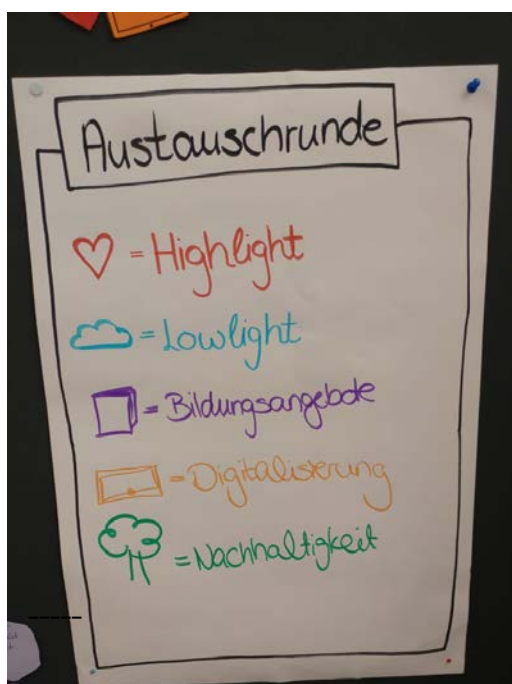 Austauschrunde
= Highlight
= Lowlight
= Bildungsangebote
= Digitalisierung
= Nachhaltigkeit